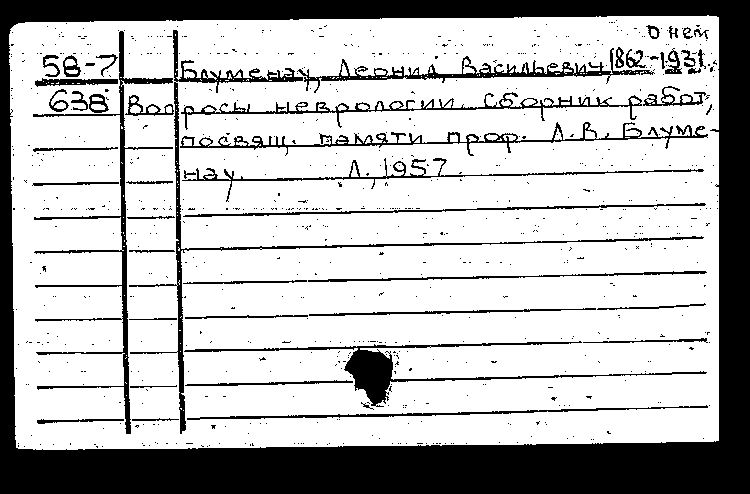 О нем
58-7 Блуменау, Леонид Васильевич, 1862-1931.
638 Вопросы неврологии. Сборник работ,
посвящ. памяти проф. Л.В. Блуме-
нау. Л., 1957.